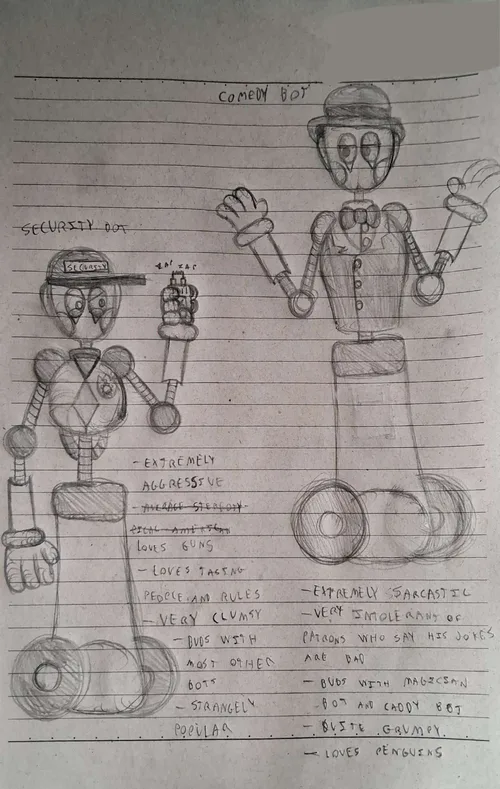 COMEDY BOT
SECURITY BOT
SECURITY
ZAP ZAP
- EXTREMELY
AGGRESSIVE
- AVERAGE STEREOTY
PICAL AMERICAN
LOVES GUNS
- LOVES TASING
PEOPLE AND RULES
- VERY CLUMSY
- BUDS WITH
MOST OTHER
BOTS
- STRANGELY
POPULAR
- EXTREMELY SARCASTIC
- VERY INTOLERANT OF
PATRONS WHO SAY HIS JOKES
ARE BAD
- BUDS WITH MAGICIAN
BOT AND CADDY BOT
- QUITE GRUMPY
- LOVES PENGUINS